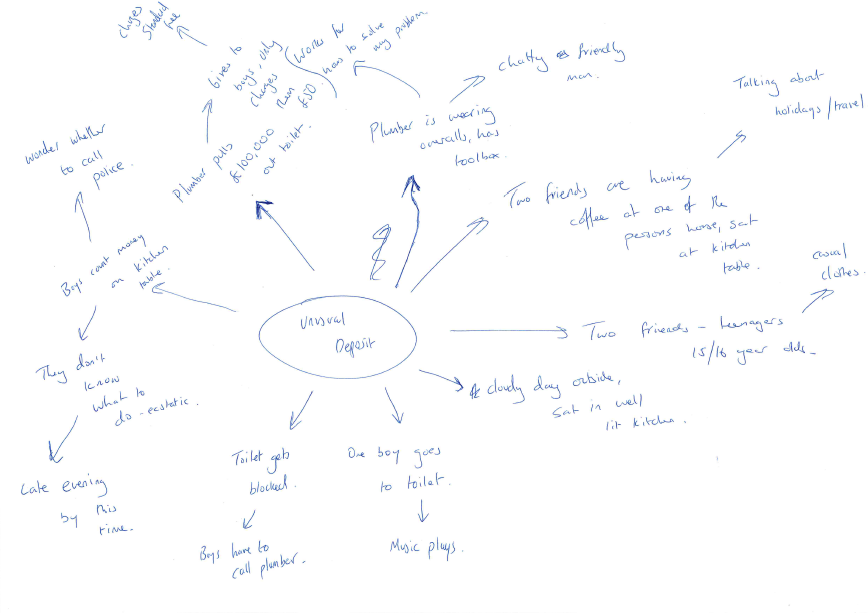 Unusual
Deposit
Plumber is wearing
overalls, has
toolbox.
chatty friendly
man.
works for
how to solve
any problem.
Two friends are having
coffee at one of the
persons house, sat
at kitchen
table.
Talking about
holidays/travel
Two friends - teenagers
15/16 year olds.
casual
clothes.
cloudy day outside,
sat in well
lit kitchen.
One boy goes
to toilet.
Music plays.
Toilet gets
blocked.
Boys have to
call plumber.
Plumber pulls
£100,000
out toilet.
Gives to
boys, only
charges
them
£50
charges
standard
fee
Boys count money
on kitchen
table.
wonder whether
to call
police.
They don't
know
what to
do - ecstatic.
Late evening
by this
time.